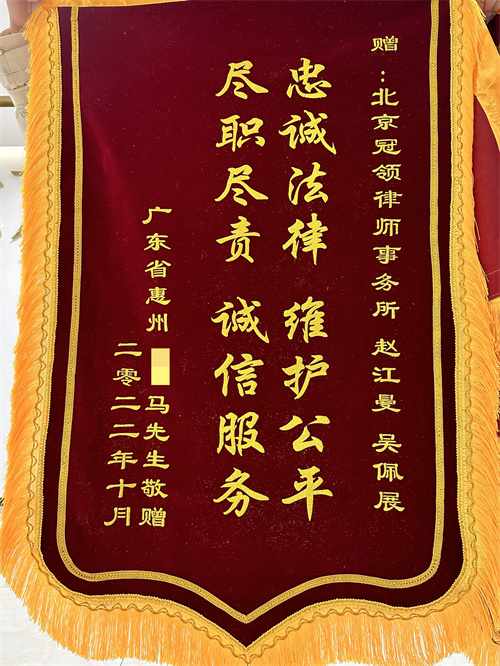 赠：北京冠领律师事务所 赵江曼 吴佩展
忠诚法律 维护公平
尽职尽责 诚信服务
广东省惠州 马先生敬赠
二零二二年十月